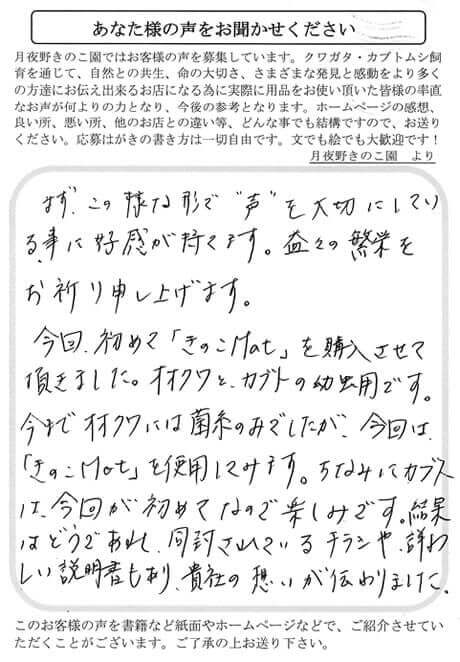 あなた様の声をお聞かせください
月夜野きのこ園ではお客様の声を募集しています。クワガタ・カブトムシ飼
育を通じて、自然との共生、命の大切さ、さまざまな発見と感動をより多く
の方達にお伝え出来るお店になる為に実際に用品をお使い頂いた皆様の率直
なお声が何よりの力となり、今後の参考となります。ホームページの感想、
良い所、悪い所、他のお店との違い等、どんな事でも結構ですので、お送り
ください。応募はがきの書き方は一切自由です。文でも絵でも大歓迎です！
月夜野きのこ園　より
まず、この様な形で“声”を大切にしてい
る事に好感が持てます。益々の繁栄を
お祈り申し上げます。
今回、初めて「きのこMat」を購入させて
頂きました。オオクワと、カブトの幼虫用です。
今までオオクワには菌糸のみでしたが、今回は、
「きのこMat」を使用してみます。ちなみにカブト
は、今回が初めてなので楽しみです。結果
はどうであれ、同封されているチラシや、詳わ
しい説明書もあり、貴社の想いが伝わりました。
このお客様の声を書籍など紙面やホームページなどで、ご紹介させてい
ただくことがございます。ご了承の上お送り下さい。